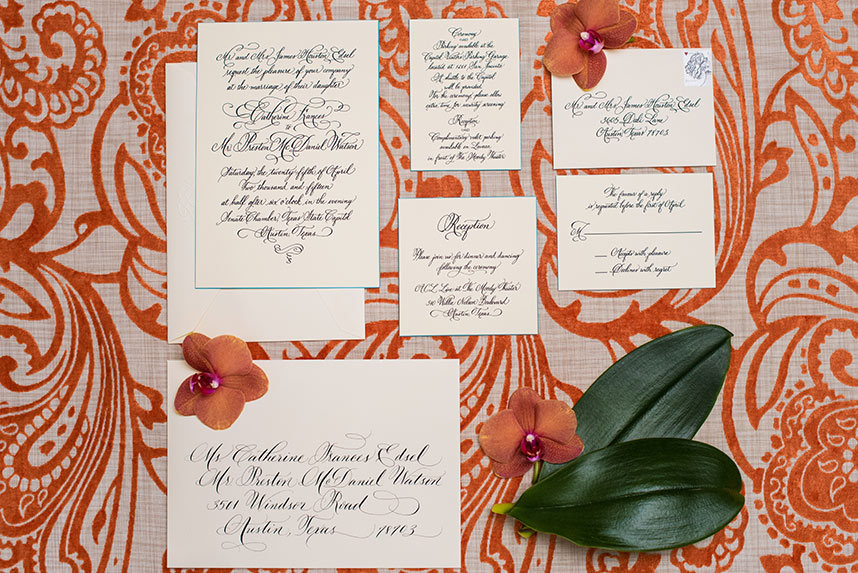 Mr. and Mrs. James Houston Edsel
request the pleasure of your company
at the marriage of their daughter
Catherine Frances
to
Mr. Preston McDaniel Watson
Saturday, the twenty-fifth of April
Two thousand and fifteen
at half after six o'clock in the evening
Senate Chamber, Texas State Capitol
Austin, Texas
Ceremony
Parking available at the
Capitol Visitors Parking Garage
located at 1201 San Jacinto
A shuttle to the Capitol
will be provided.
For the ceremony, please allow
extra time for security screening
Reception
Complimentary valet parking
available on Lavaca,
in front of the Moody Theater
Mr. and Mrs. James Houston Edsel
3605 Dale Lane
Austin, Texas 78703
The favour of a reply
is requested before the first of April
M
Accepts with pleasure
Declines with regret
Reception
Please join us for dinner and dancing
following the ceremony
ACL Live at The Moody Theater
310 Willie Nelson Boulevard
Austin, Texas
Ms. Catherine Frances Edsel
Mr. Preston McDaniel Watson
3511 Windsor Road
Austin, Texas 78703